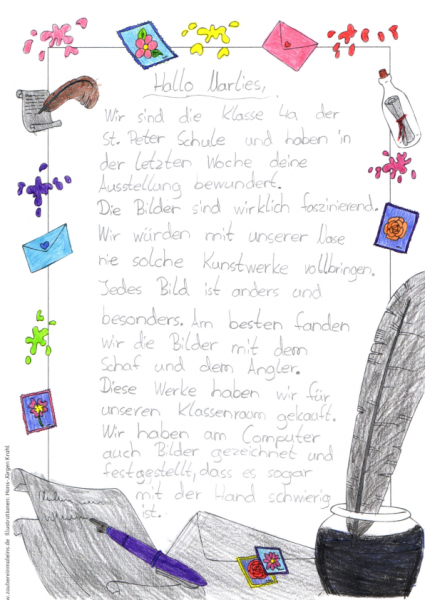 Hallo Marlies,
Wir sind die Klasse 4a der
St. Peter Schule und haben in
der letzten Woche deine
Ausstellung bewundert.
Die Bilder sind wirklich faszinierend.
Wir würden mit unserer Nase
nie solche Kunstwerke vollbringen.
Jedes Bild ist anders und
besonders. Am besten fanden
wir die Bilder mit dem
Schaf und dem Angler.
Diese Werke haben wir für
unseren Klassenraum gekauft.
Wir haben am Computer
auch Bilder gezeichnet und
festgestellt, dass es sogar
mit der Hand schwierig
ist.
Illustrationen: Hans-Jürgen Krahl